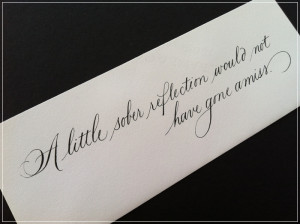 A little sober reflection would not
have gone amiss.